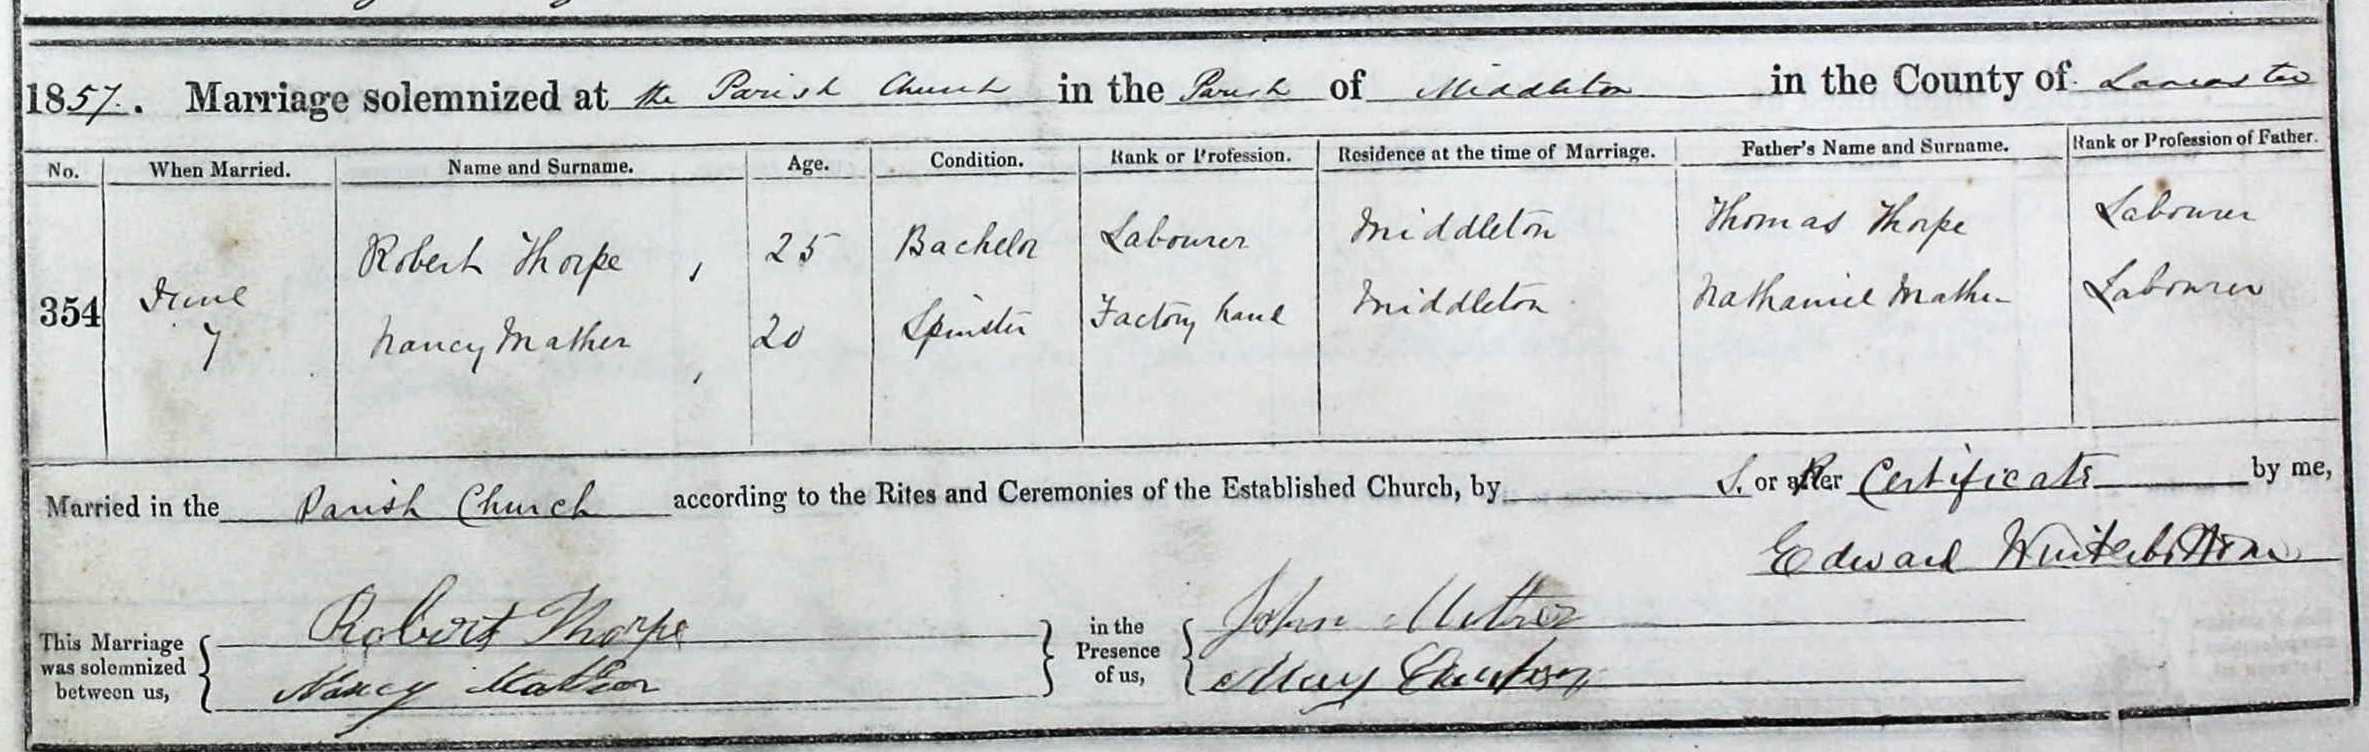 1857. Marriage solemnized at the Parish Church in the Parish of Middleton in the County of Lancaster
No. When Married. Name and Surname. Age. Condition. Rank or Profession. Residence at the time of Marriage. Father's Name and Surname. Rank or Profession of Father.
Robert Thorpe, 25 Bachelor Labourer Middleton Thomas Thorpe Labourer
354 June 7
Nancy Mather, 20 Spinster Factory hand Middleton Nathaniel Mather Labourer
Married in the Parish Church according to the Rites and Ceremonies of the Established Church, by or after Certificate by me,
Edward Winterbottom
This Marriage was solemnized between us,
Robert Thorpe
Nancy Mather
in the Presence of us,
John
Mary